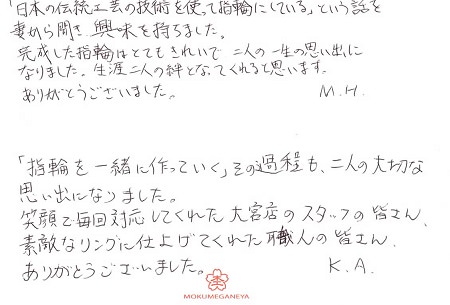 「日本の伝統工芸の技術を使って指輪にしている」という話を
妻から聞き興味を持ちました。
完成した指輪はとてもきれいで二人の一生の思い出に
なりました。生涯二人の絆となってくれると思います。
ありがとうございました。 M.H.
「指輪を一緒に作っていく」その過程も、二人の大切な
思い出になりました。
笑顔で毎回対応してくれた大宮店のスタッフの皆さん、
素敵なリングに仕上げてくれた職人の皆さん、
ありがとうございました。 K.A.
MOKUMEGANEYA